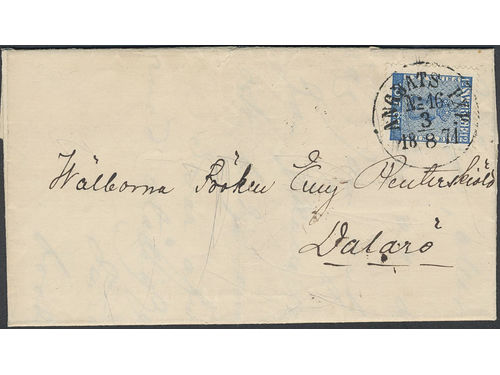 ÅNGBÅTS PXP.
No 16
3
18 8 71
Wälborna Fröken Emy Reuterskiöld
Dalarö